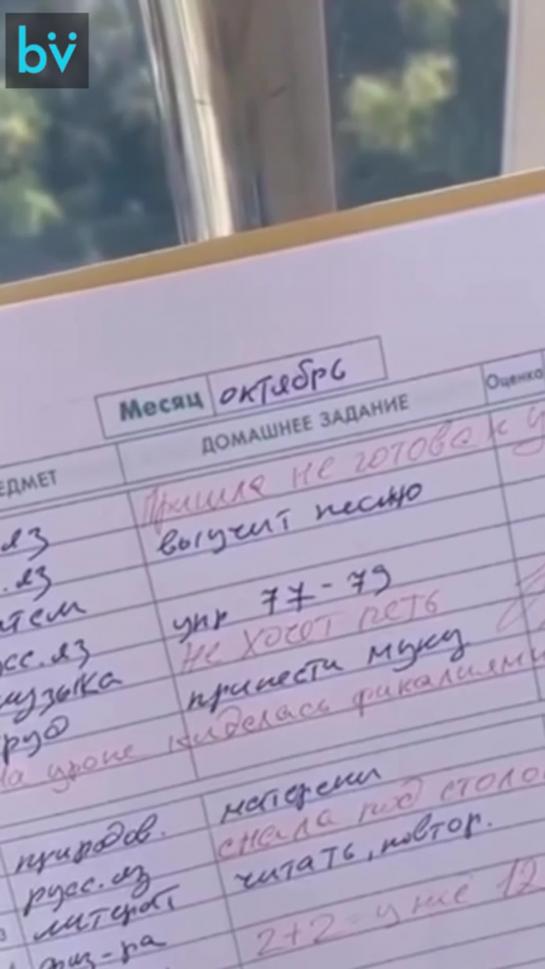 bv
Месяц октябрь
ЕДМЕТ ДОМАШНЕЕ ЗАДАНИЕ Оценка
Пришла не готова к у
яз выучит песню
. яз
атем упр 77-79
сс. яз не хочет петь
музыка принести муку
руд
На уроке киделась фикалиями
природов. матерени
русс. яз спала под столо
литерат читать, повтор.
физ-ра 2+2 = уже 12